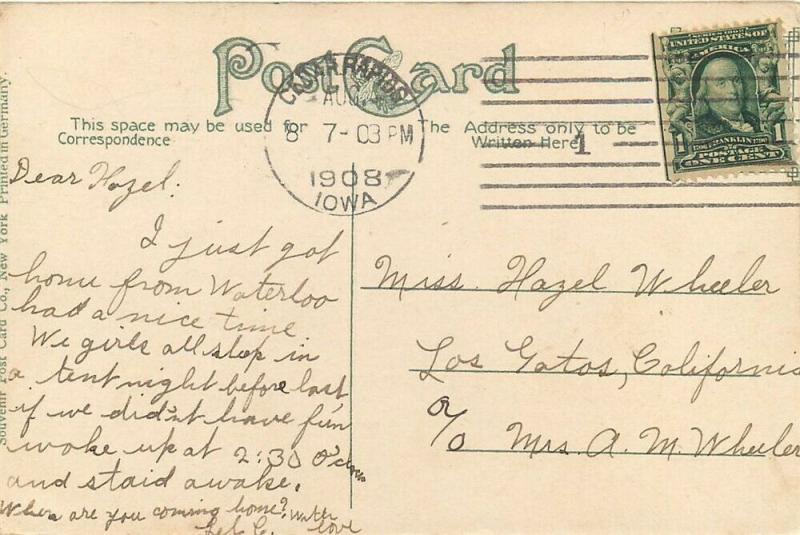 Post Card
CEDAR RAPIDS
AUG
8 7-03 PM
1908
IOWA
UNITED STATES OF
AMERICA
FRANKLIN
1 1
POSTAGE
ONE CENT
This space may be used for
Correspondence
The Address only to be
Written Here
1
Souvenir Post Card Co., New York Printed in Germany.
Dear Hazel:
I just got
home from Waterloo
had a nice time
We girls all slep in
a tent night before last,
if we didn't have fun
woke up at 2:30 O'
and staid awake.
When are you coming home?
with love
Miss. Hazel Wheeler
Los Gatos, California
c/o Mrs. A. M. Wheeler